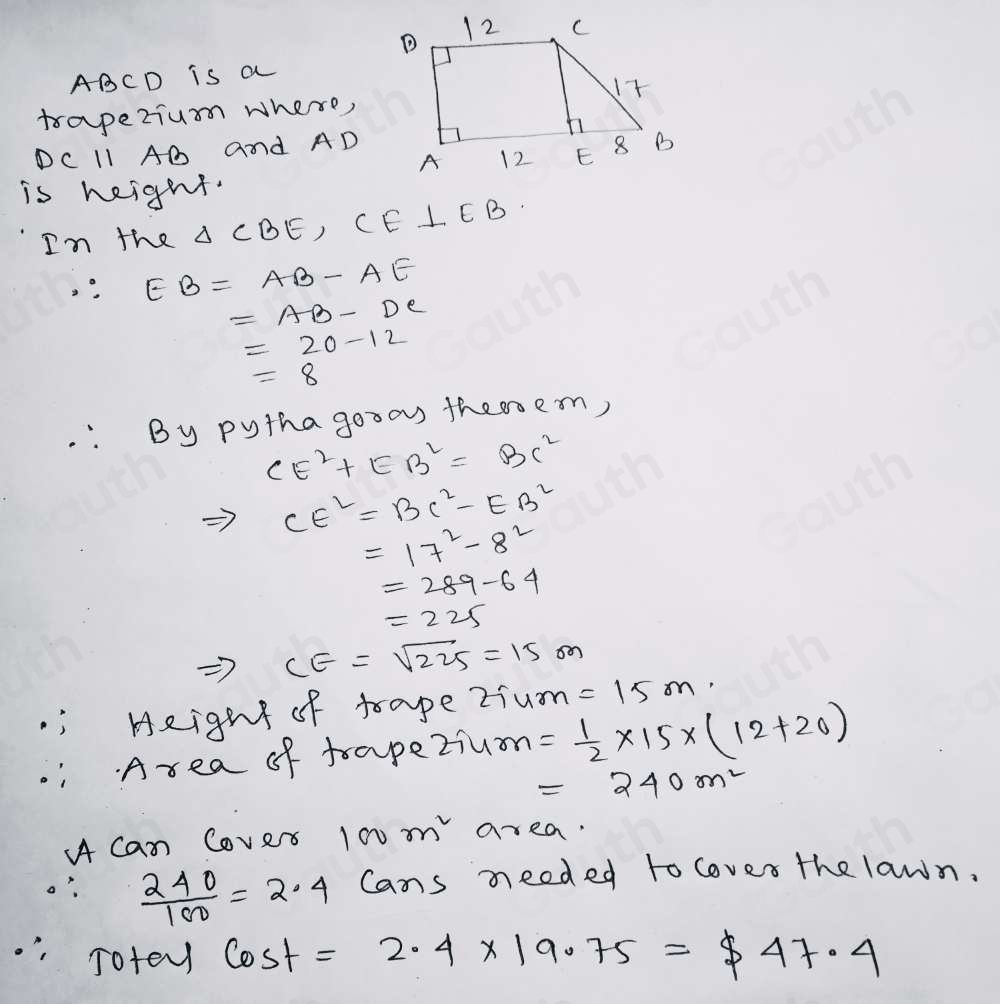 D 12 C
17
A 12 E 8 B
ABCD is a
trapezium where,
DC || AB and AD
is height.
In the Δ CBE, CE ⊥ EB.
∴ EB = AB - AE
= AB - DC
= 20-12
= 8
∴ By pythagoras theorem,
CE² + EB² = BC²
⇒ CE² = BC² - EB²
= 17² - 8²
= 289-64
= 225
⇒ CE = √225 = 15 m
∴ Height of trapezium = 15 m.
∴ Area of trapezium = 1/2 × 15 × (12+20)
= 240 m²
A can cover 100 m² area.
∴ 240/100 = 2.4 cans needed to cover the lawn.
∴ Total Cost = 2.4 × 19.75 = $ 47.4
Gauth